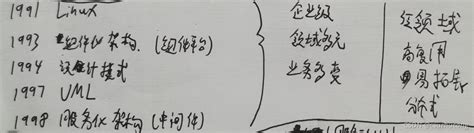 1991 Linux
1993 组件化架构 (组件平台)
1994 设计模式
1997 UML
1998 服务化架构 (中间件)
企业级
领域多元
业务多变
经领域
高复用
易拓展
分式